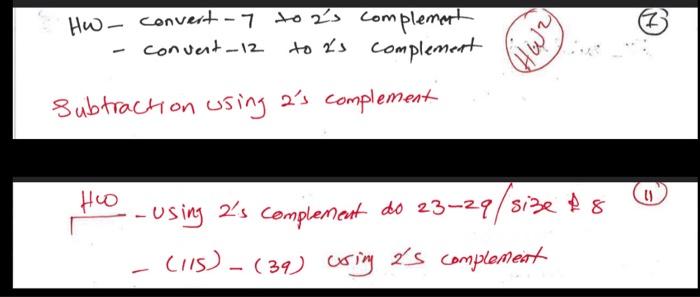 HW - convert - 7 to 2's complement
- convert - 12 to 2's complement
HW2
7
Subtraction using 2's complement
HW - using 2's complement do 23-29/size 8
11
- (115) - (39) using 2's complement